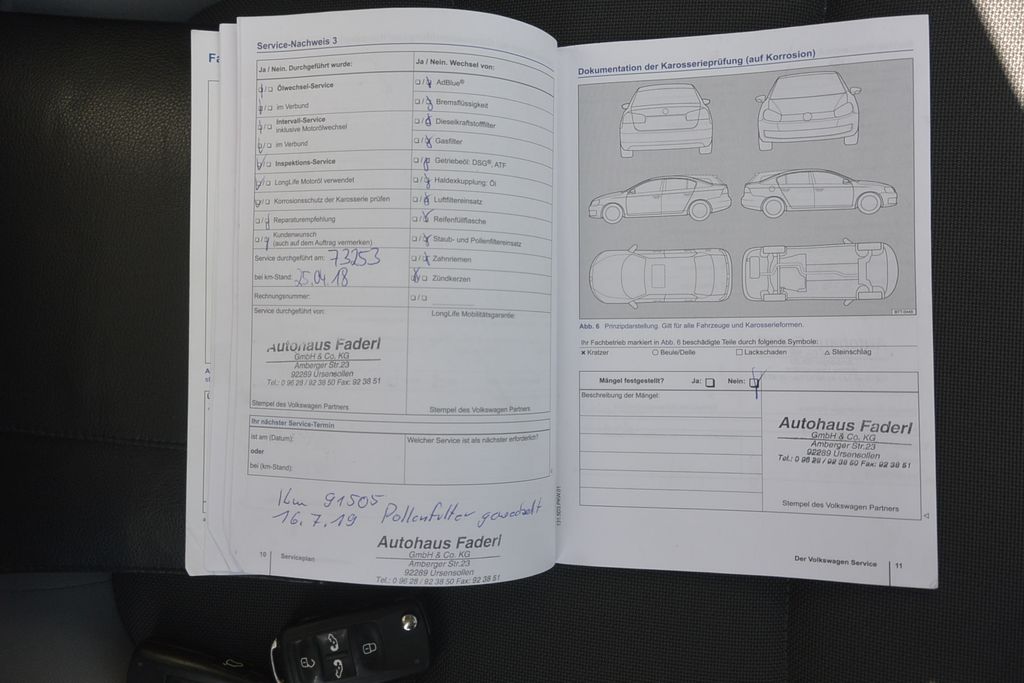 Service-Nachweis 3
Ja / Nein. Durchgeführt wurde:
Ölwechsel-Service
im Verbund
Intervall-Service
inklusive Motorölwechsel
im Verbund
Inspektions-Service
LongLife Motoröl verwendet
Korrosionsschutz der Karosserie prüfen
Reparaturempfehlung
Kundenwunsch
(auch auf dem Auftrag vermerken)
Service durchgeführt am: 73253
bei km-Stand: 25.04.18
Rechnungsnummer:
Service durchgeführt von:
Autohaus Faderl
GmbH & Co. KG
Amberger Str.23
92289 Ursensollen
Tel.: 0 96 28 / 92 38 50 Fax: 92 38 51
Stempel des Volkswagen Partners
Ja / Nein. Wechsel von:
AdBlue®
Bremsflüssigkeit
Dieselkraftstofffilter
Gasfilter
Getriebeöl: DSG®, ATF
Haldexkupplung: Öl
Luftfiltereinsatz
Reifenfüllflasche
Staub- und Pollenfiltereinsatz
Zahnriemen
Zündkerzen
LongLife Mobilitätsgarantie:
Stempel des Volkswagen Partners
Ihr nächster Service-Termin
ist am (Datum):
oder
bei (km-Stand):
Welcher Service ist als nächster erforderlich?
Km 91505
16.7.19 Pollenfilter gewechselt
Autohaus Faderl
GmbH & Co. KG
Amberger Str.23
92289 Ursensollen
Tel.: 0 96 28 / 92 38 50 Fax: 92 38 51
10 Serviceplan
Dokumentation der Karosserieprüfung (auf Korrosion)
Abb. 6 Prinzipdarstellung. Gilt für alle Fahrzeuge und Karosserieformen.
Ihr Fachbetrieb markiert in Abb. 6 beschädigte Teile durch folgende Symbole:
× Kratzer ○ Beule/Delle □ Lackschaden △ Steinschlag
Mängel festgestellt? Ja: Nein:
Beschreibung der Mängel:
Autohaus Faderl
GmbH & Co. KG
Amberger Str.23
92289 Ursensollen
Tel.: 0 96 28 / 92 38 50 Fax: 92 38 51
Stempel des Volkswagen Partners
Der Volkswagen Service 11